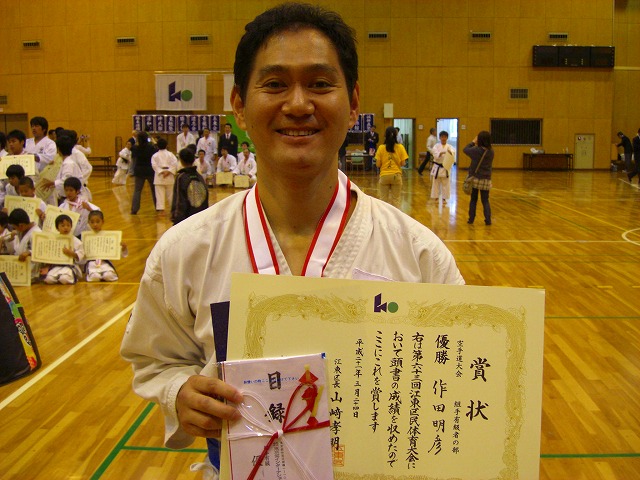 賞状
空手道大会
組手有級者の部
優勝 作田明彦
右は第六十三回江東区民体育大会に
おいて頭書の成績を収めたので
ここにこれを賞します
平成二十二年三月二十四日
江東区長 山﨑孝明
目録